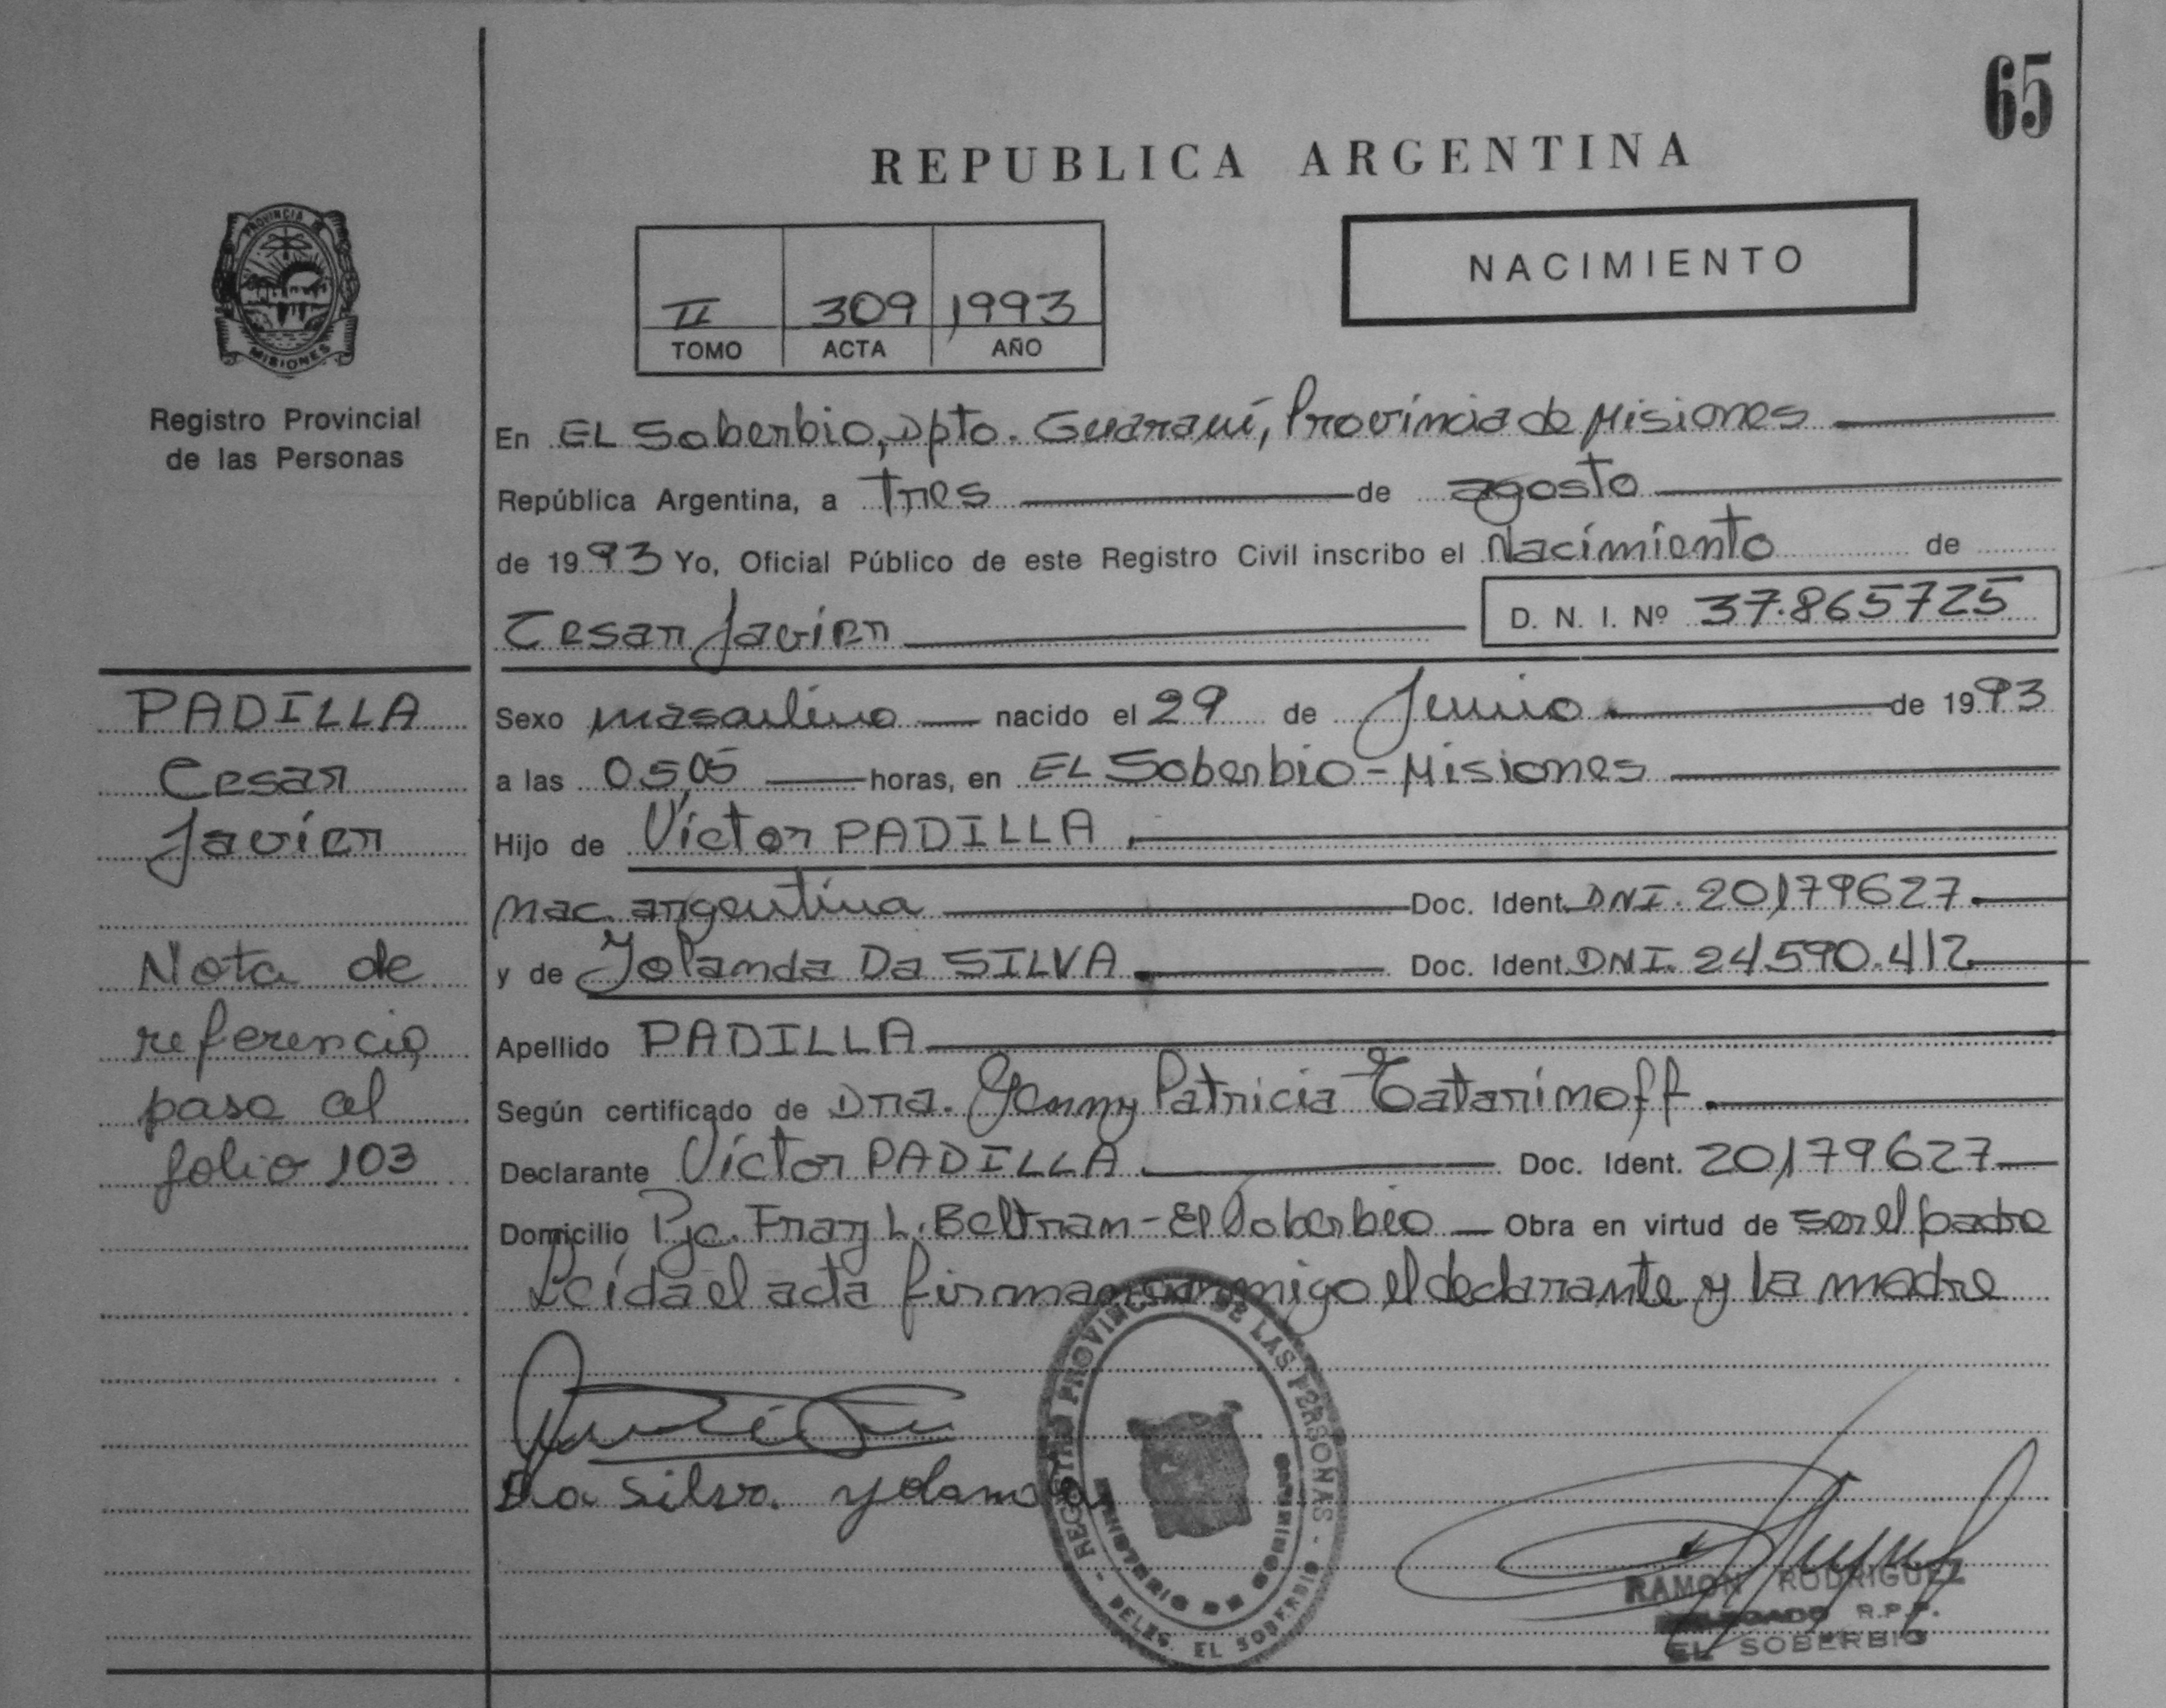 65
REPUBLICA ARGENTINA
PROVINCIA DE
MISIONES
Registro Provincial
de las Personas
NACIMIENTO
II 309 1993
TOMO ACTA AÑO
En EL Soberbio, Dpto. Guaraní, Provincia de Misiones
República Argentina, a Tres de agosto
de 1993 Yo, Oficial Público de este Registro Civil inscribo el Nacimiento de
Cesar Javier D. N. I. Nº 37.865725
Sexo masculino nacido el 29 de Junio de 1993
a las 05,05 horas, en EL Soberbio - Misiones
Hijo de Víctor PADILLA
nac. argentina Doc. Ident. DNI. 20179627
y de Yolanda Da SILVA Doc. Ident. DNI. 24590.412
Apellido PADILLA
Según certificado de Dra. Jenny Patricia Tatarinoff
Declarante Víctor PADILLA Doc. Ident. 20179627
Domicilio Pje. Fray L. Beltran - El Soberbio Obra en virtud de ser el padre
Leída el acta firman conmigo el declarante y la madre
Da Silva. yolanda
PADILLA
Cesar
Javier
Nota de
referencia
pasa al
folio 103
REGISTRO PROVINCIAL DE LAS PERSONAS - DELEG. EL SOBERBIO -
RAMON RODRIGUEZ
DELEGADO R.P.P.
EL SOBERBIO